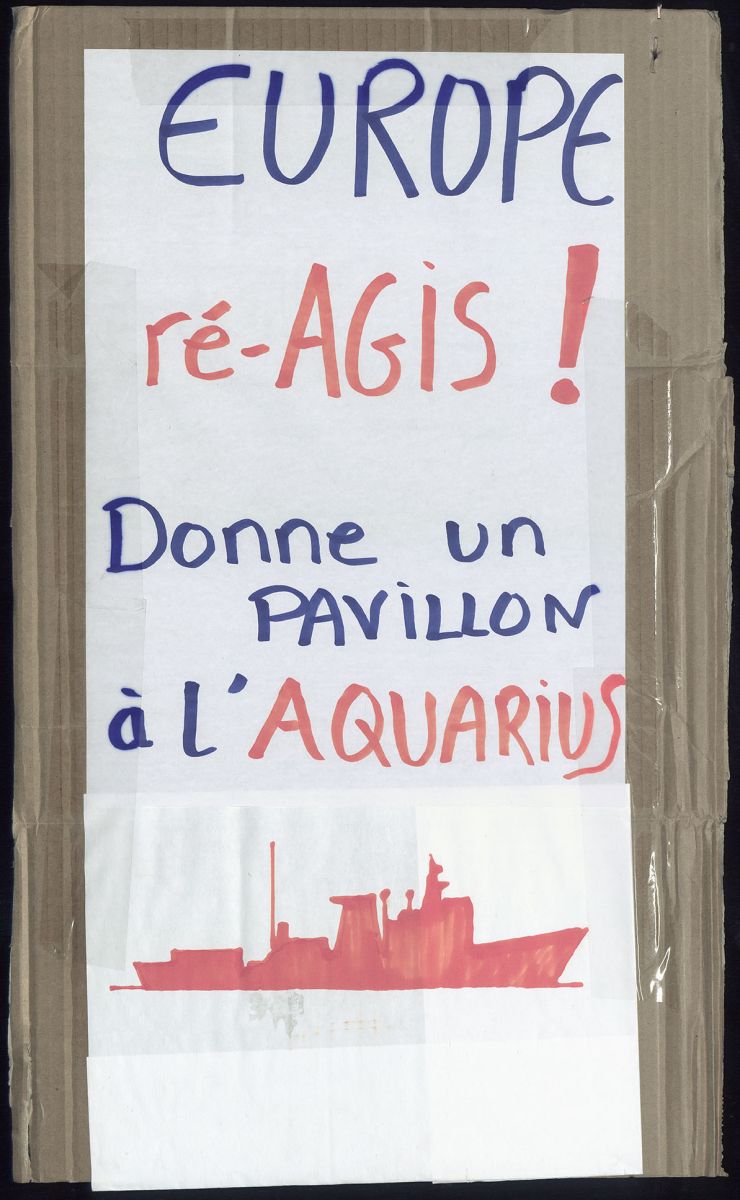 EUROPE
ré-AGiS !
Donne un
PAViLLON
à l'AQUARiUS